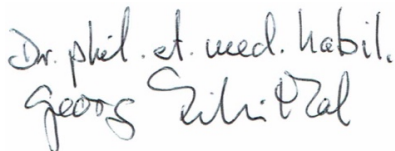 Dr. phil. et. med. habil.
Georg